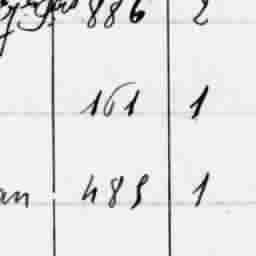 886 2
161 1
an 485 1